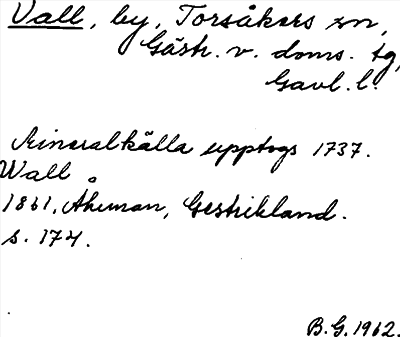 Vall, by, Torsåkers sn,
Gästr. v. doms. tg,
Gävl. l.
Mineralkälla upptogs 1737.
Wall
1861, Åhrman, Gestrikland.
s. 174.
B. G. 1962.